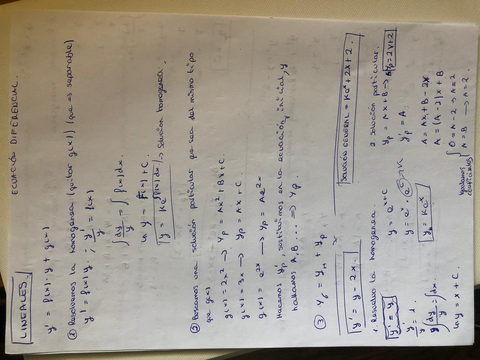 ECUACIÓN DIFERENCIAL.
LINEALES.
y' = f(x)·y + g(x)
① Resolvemos la homogenea (quitar g(x)) (que es separable)
y' = f(x)y ; y'/y = f(x)
∫ dy/y = ∫ f(x) dx.
ln y = F(x) + C.
y = K e^∫f(x)dx → Solución homogenea.
② Buscamos una solución particular que sea del mismo tipo
que g(x)
g(x) = 2x² → Yp = Ax² + Bx + C
g(x) = 3x → Yp = Ax + C
g(x) = e^2x → Yp = Ae^2x
Hacemos y'p, sustituimos en la ecuación inicial, y
hallamos A, B... → Yp.
③ Yg = Yh + Yp
y' = y - 2x.
Solución GENERAL = K e^x + 2x + 2.
1. Resuelvo la homogenea
y' = y
y'/y = 1.
∫ dy/y = ∫ dx.
ln y = x + C.
y = e^x+C
y = e^x · e^C = K
yh = K e^x
2. Solución particular.
yp = Ax + B → yp = 2x + 2
y'p = A.
A = Ax + B - 2x
A = (A - 2)x + B
Igualamos coeficientes
0 = A - 2 → A = 2
A = B. → A = 2.